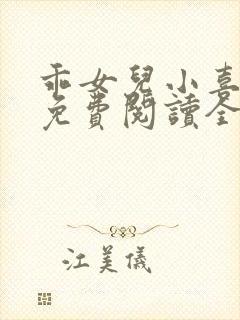 乖女兒小喜
免費閱讀全
江美儀